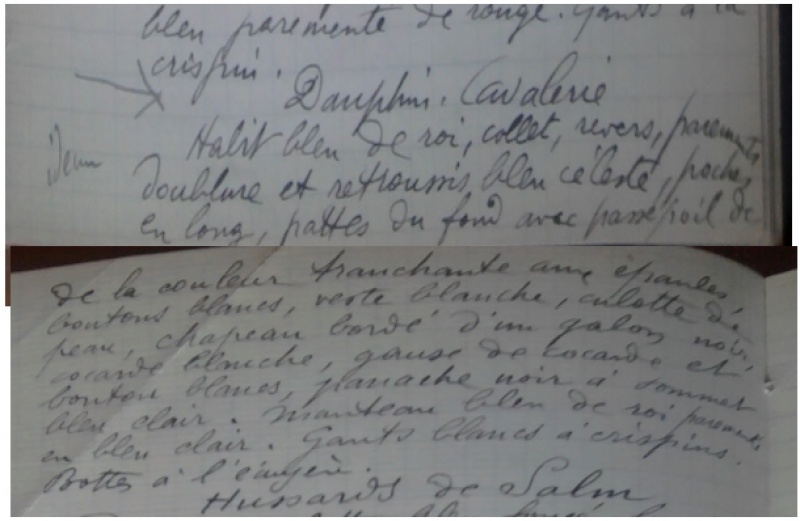 bleu parementé de rouge. Gants à la
crispin.
Dauphin. Cavalerie
Idem
Habit bleu de roi, collet, revers, parements
doublure et retroussis bleu céleste, poches
en long, pattes du fond avec passepoil de
de la couleur tranchante aux épaules,
boutons blancs, veste blanche, culotte de
peau, chapeau bordé d'un galon noir,
cocarde blanche, ganse de cocarde et
bouton blancs, panache noir à sommet
bleu clair. Manteau bleu de roi parements
en bleu clair. Gants blancs à crispins.
Bottes à l'écuyère.
Hussards de Salm